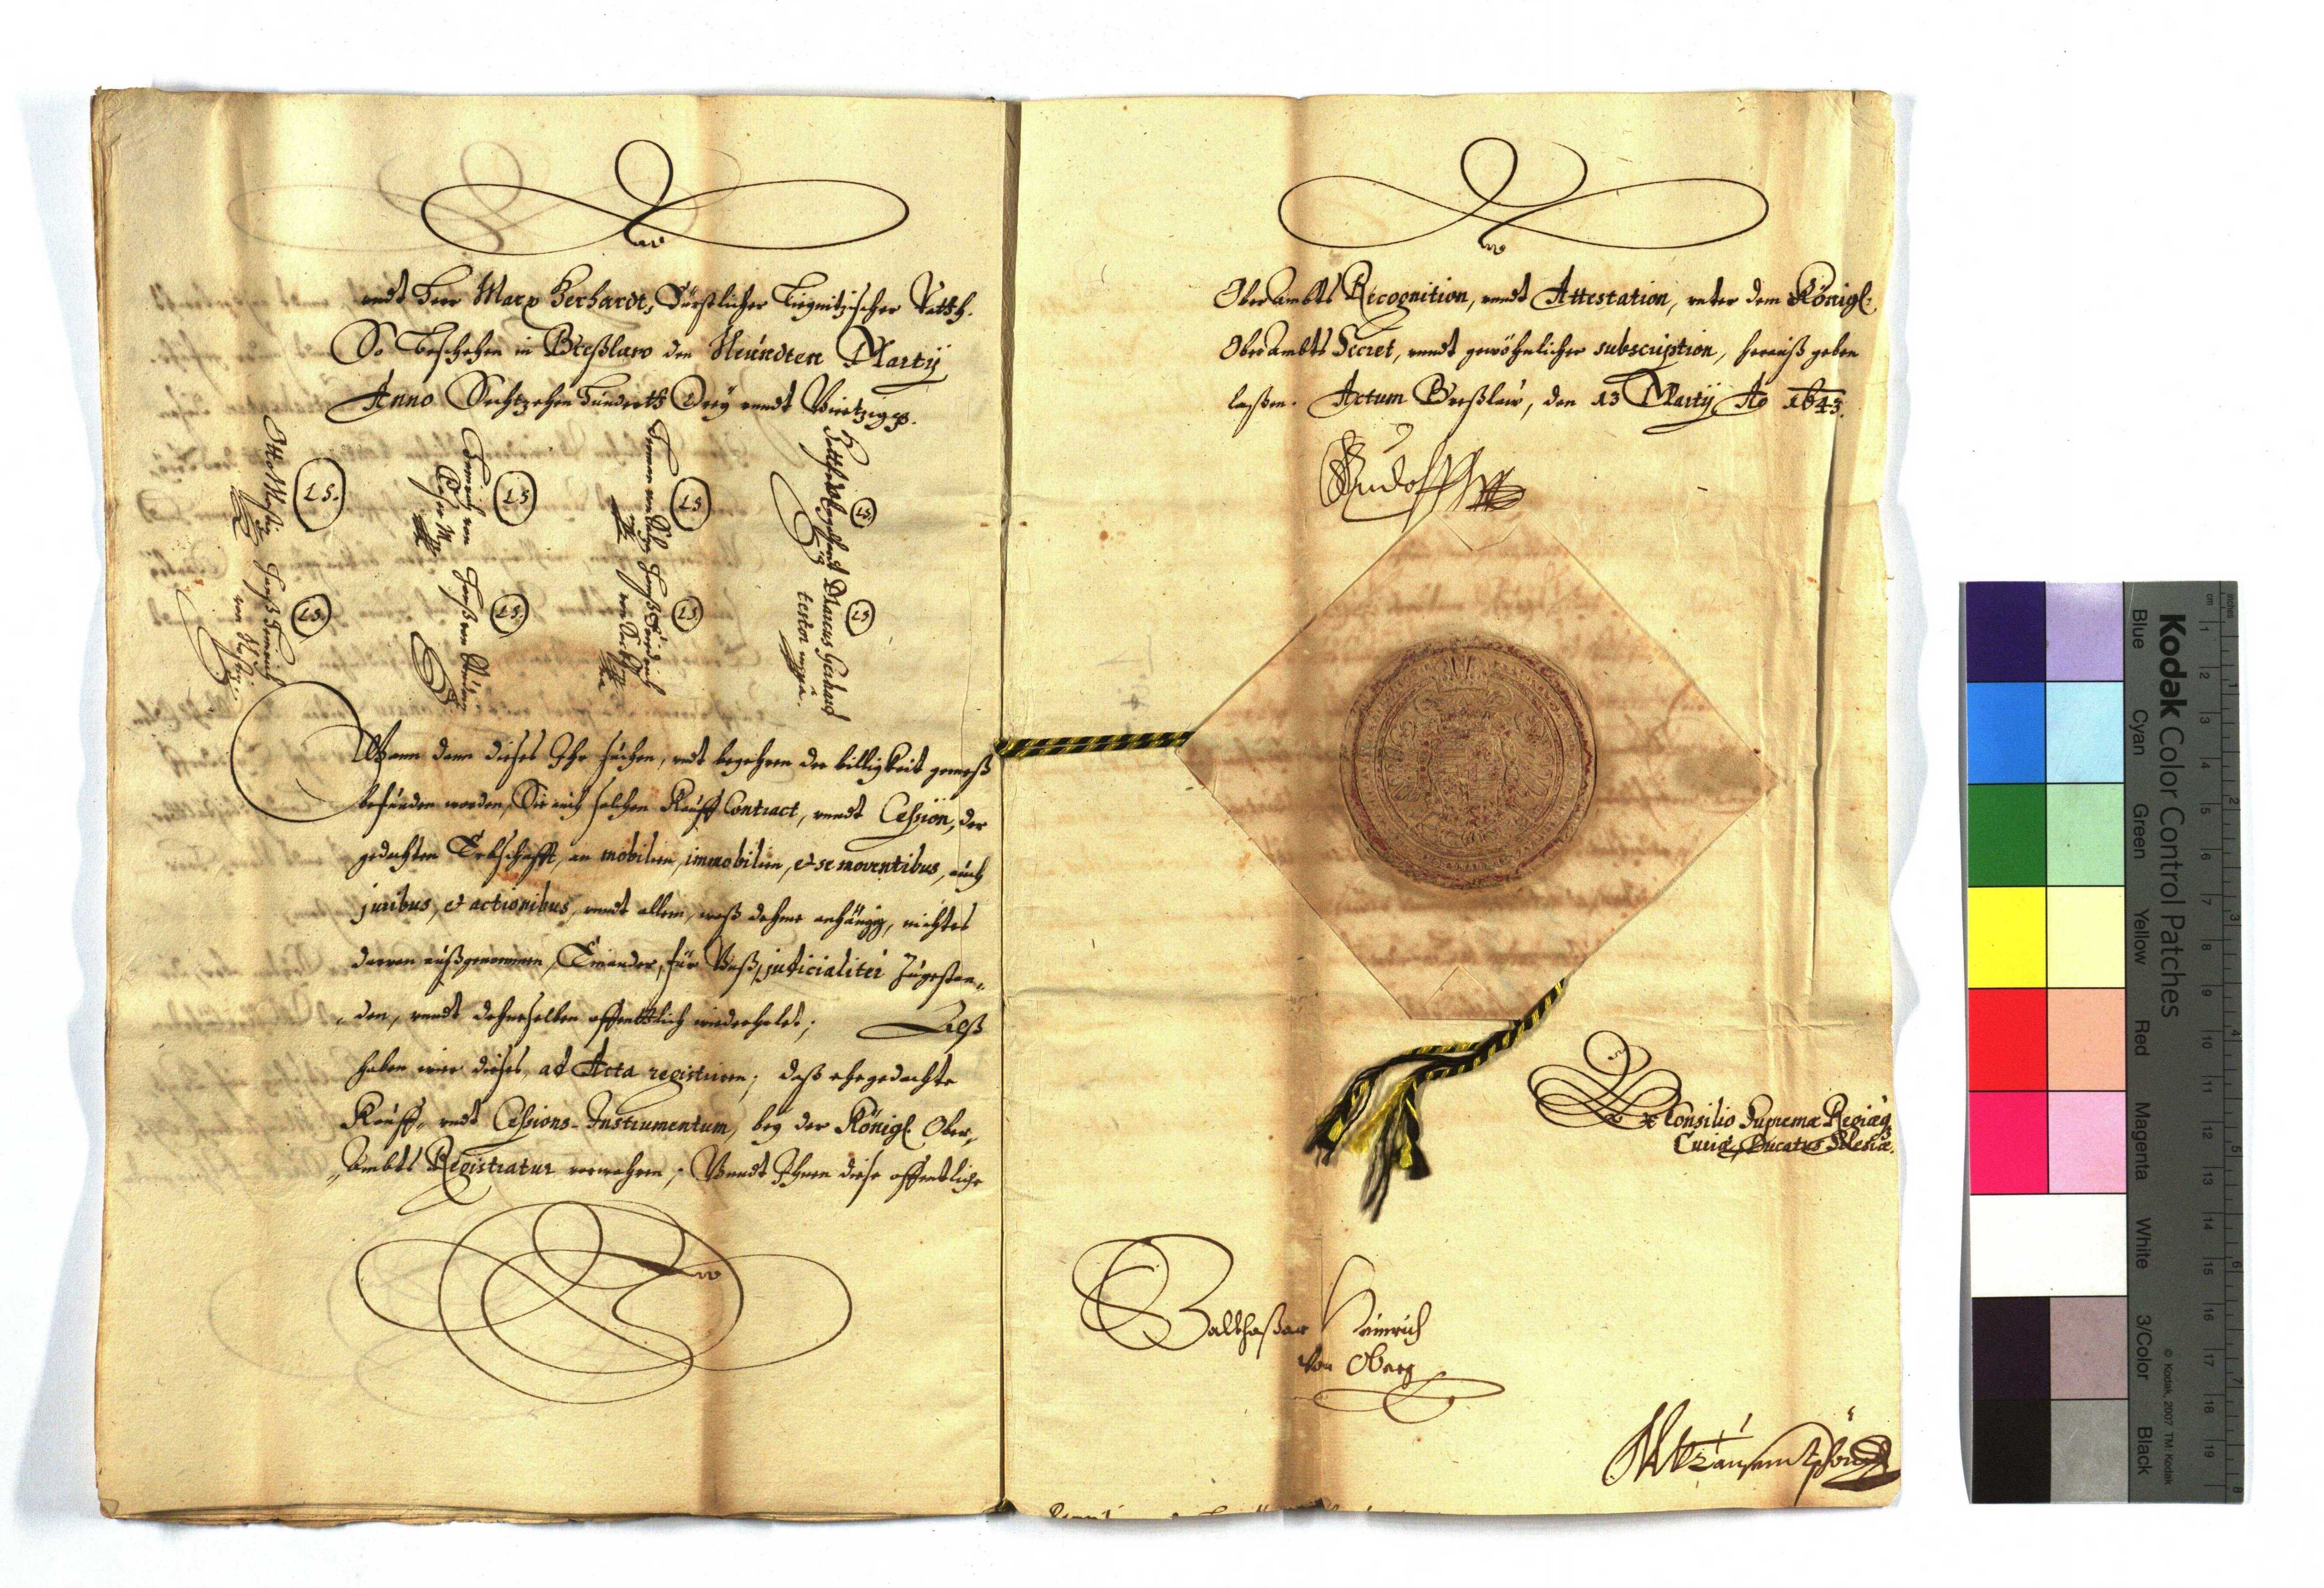 undt Herr Marx Gerhardt, Fürstlicher Liegnitzischer Rath.
So beschehen in Breßlaw den Neündten Martÿ
Anno Sechtzehen Hunderth Dreÿ undt Viertzigg.
L.S.
L.S.
L.S.
L.S.
Otto
Heinrich von
L.S.
L.S.
L.S.
L.S.
Hanß Heinrich
von
Hanß von
Hanß Friedrich
von
Marcus Gerhard
testor mppa.
Wann dann dieses Ihr suchen, undt begehren der billigkeit gemeß
befünden worden, Sie auch solchen Kauff Contract, undt Cession, der
gedachten Erbschafft, an mobilien, immobilien, et se moventibus, auch
juribus, et actionibus, undt allem, waß dehme anhängig, nichtes
darvon außgenommen, Einander, für Unß, judicialiter zugestan-
den, undt dehnenselben offentlich wiederholet; Alß
haben wier dieses, ad Acta registriren; daß ehegedachte
Kauff, undt Cessions-Instrumentum, beÿ der Königl. Ober
Ambts Registratur verwahren; Undt Ihnen diese offentliche
OberAmbts Recognition, undt Attestation, unter dem Königl:
OberAmbts Secret, undt gewöhnlicher subscription, herauß geben
laßen. Actum Breßlaw, den 13 Martÿ Ao 1643.
Rudolff
Ex Consilio Supremæ Regiæq
Curiæ, Ducatus Silesiæ.
Balthasar Heinrich
von Oberg
Kodak Color Control Patches
Blue Cyan Green Yellow Red Magenta White 3/Color Black
© Kodak, 2007 TM: Kodak
inches 1 2 3 4 5 6 7 8
cm 1 2 3 4 5 6 7 8 9 10 11 12 13 14 15 16 17 18 19